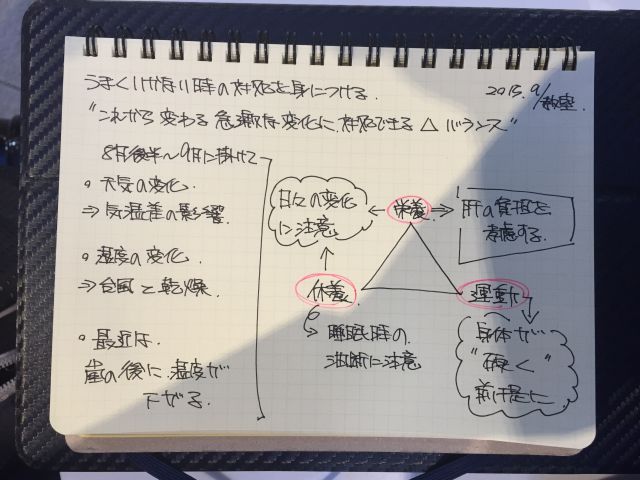 うまくいかない時の対処を身につける。
2015.9/教室
"これから変わる 急激な変化に、対処できる △ バランス"
8月後半～9月に掛けて
・天気の変化
⇒ 気温差の影響
・湿度の変化
⇒ 台風と乾燥
・最近は
嵐の後に、温度が
下がる。
日々の変化
に注意
栄養
肝の負担を
考慮する。
休養
運動
睡眠時の
油断に注意
身体が
"硬く"
前は足に